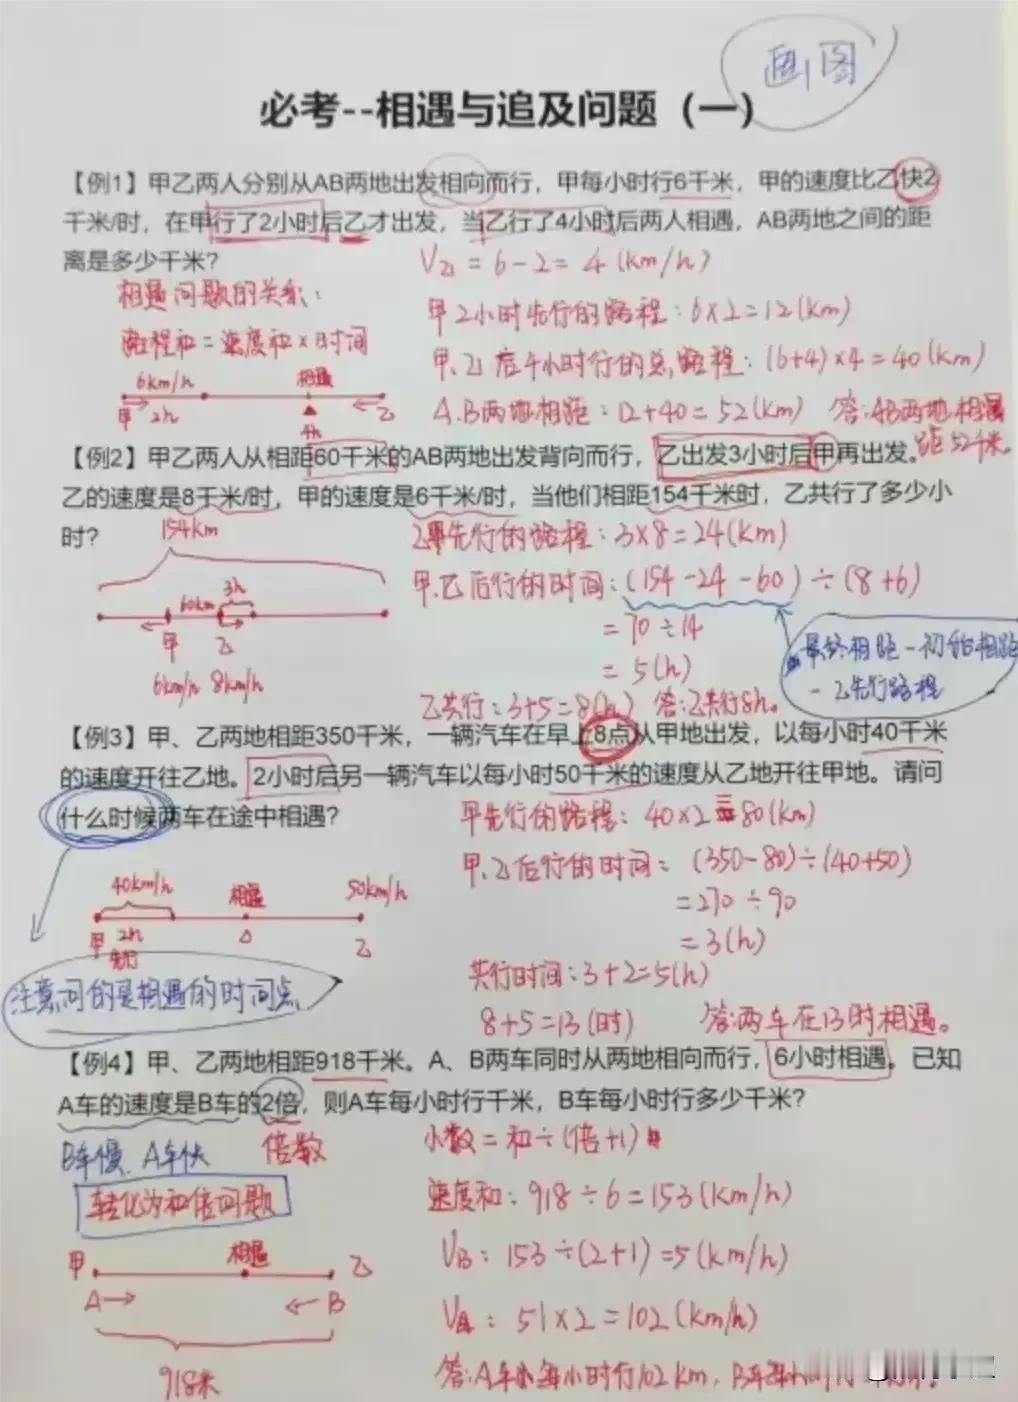 画图
必考--相遇与追及问题（一）
【例1】甲乙两人分别从AB两地出发相向而行，甲每小时行6千米，甲的速度比乙快2
千米/时，在甲行了2小时后乙才出发，当乙行了4小时后两人相遇，AB两地之间的距
离是多少千米？
V乙 = 6-2 = 4 (km/h)
相遇问题的关系：
路程和 = 速度和 × 时间
甲2小时先行的路程：6×2=12(km)
甲、乙后4小时行的总路程：(6+4)×4=40(km)
A.B两地相距：12+40=52(km) 答：AB两地相
距52千米。
6km/h 相遇
甲 2h 乙
4h
【例2】甲乙两人从相距60千米的AB两地出发背向而行，乙出发3小时后甲再出发。
乙的速度是8千米/时，甲的速度是6千米/时，当他们相距154千米时，乙共行了多少小
时？
154km
60km 3h
甲 乙
6km/h 8km/h
乙先行的路程：3×8=24(km)
甲.乙后行的时间：(154-24-60)÷(8+6)
=70÷14
=5(h)
乙共行：3+5=8(h) 答：乙共行8h。
最终相距-初始相距
-乙先行路程
【例3】甲、乙两地相距350千米，一辆汽车在早上8点从甲地出发，以每小时40千米
的速度开往乙地。2小时后另一辆汽车以每小时50千米的速度从乙地开往甲地。请问
什么时候两车在途中相遇？
40km/h 相遇 50km/h
甲 2h 乙
先行
注意问的是相遇的时间点
甲先行的路程：40×2=80(km)
甲、乙后行的时间：(350-80)÷(40+50)
=270÷90
=3(h)
共行时间：3+2=5(h)
8+5=13(时) 答：两车在13时相遇。
【例4】甲、乙两地相距918千米。A、B两车同时从两地相向而行，6小时相遇。已知
A车的速度是B车的2倍，则A车每小时行千米，B车每小时行多少千米？
B车慢、A车快 倍数
转化为和倍问题
甲 相遇 乙
A B
918米
小数 = 和÷(倍+1)
速度和：918÷6=153(km/h)
VB：153÷(2+1)=5(km/h)
VA：51×2=102(km/h)
答：A车每小时行102km，B车每